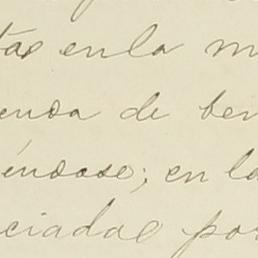 tas en la m
enda de ben
éndose; en la
ciadas por